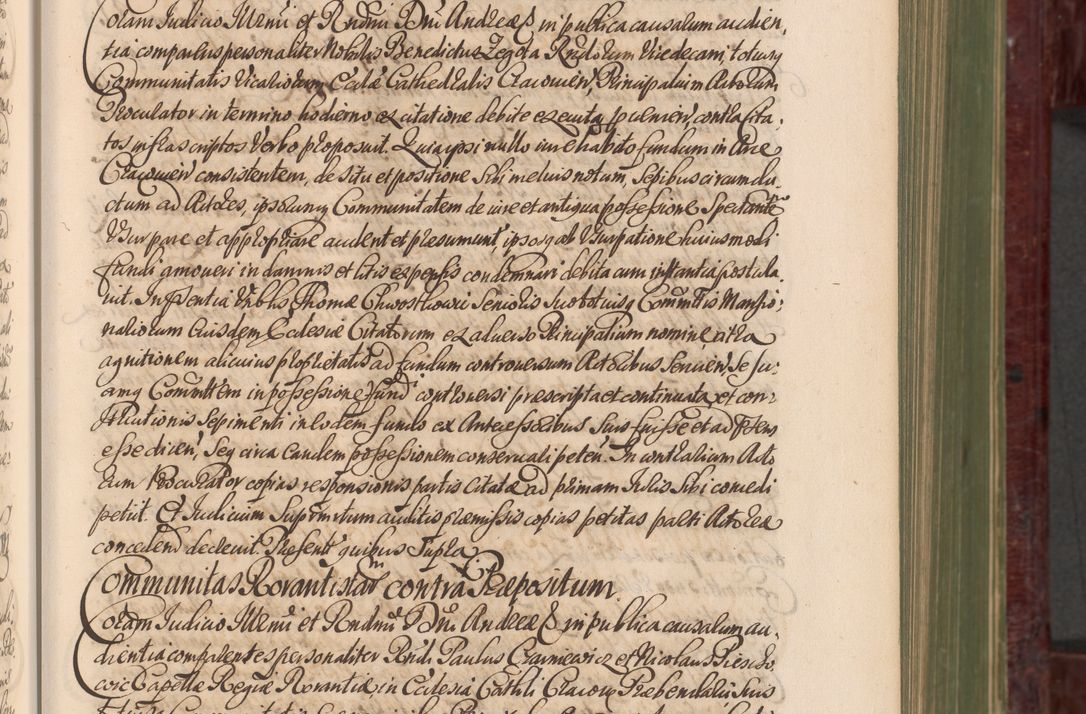 Coram Iudicio Illrmi et Rndmi Dni Andreae Ep in publica causalum audien-
tia comparens personaliter Nobilis Benedictus Zegota Rndorum Vicedecani, totiusq
Communitatis Vicariorum Ecclae Cathedralis Cracovien, Principalium Actorum
Procurator in termino hodierno ex citatione debite executa, contra Cita-
tos infrascriptos verbo proposuit. Quia ipsi nullo iure habito fundum in Arce
Cracovien consistentem, de situ et positione sibi melius notum, sepibus circumdu-
ctum ad Actores, ipsorumq Communitatem de iure et antiqua possessione spectante
usurpare et appropriare audent et praesumunt, ipsosq ab usurpatione huiusmodi
fundi amoveri in damnis et litis expensis condemnari debita cum instantia postula-
vit. In psentia Vrblis Thomae senioris suo totiusq Communtis Mansio-
nariorum eiusdem Ecclesiae Citatorum ex adverso Principalium nomine citra
agnitionem alicuius proprietatis ad fundum controversum Actoribus servien, se su-
amq Communittem in possessione fundi controversi praescripta et continuata, et con-
structionis sepimenti in eodem fundo ex Antecessoribus suis fuisse et ad psens
esse dicen, seq circa eandem possessionem conservari peten. In contrarium Acto-
rum Procurator copias responsionis partis Citatae ad primam Iuris sibi concedi
petiit. Et Iudicium suprmtum auditis praemissis copias petitas parti Actorea
concedend decrevit. Present quibus supra.
Communitas Rorantistar contra Praepositum.
Coram Iudicio Illrmi et Rndmi Dni Andreae Ep in publica causalum au-
dientia comparentes personaliter Rndi Paulus Czarniewicz et Nicolaus
Capellae Regiae Rorantiae in Ecclesia Cathli Cracov Praebendarii suis